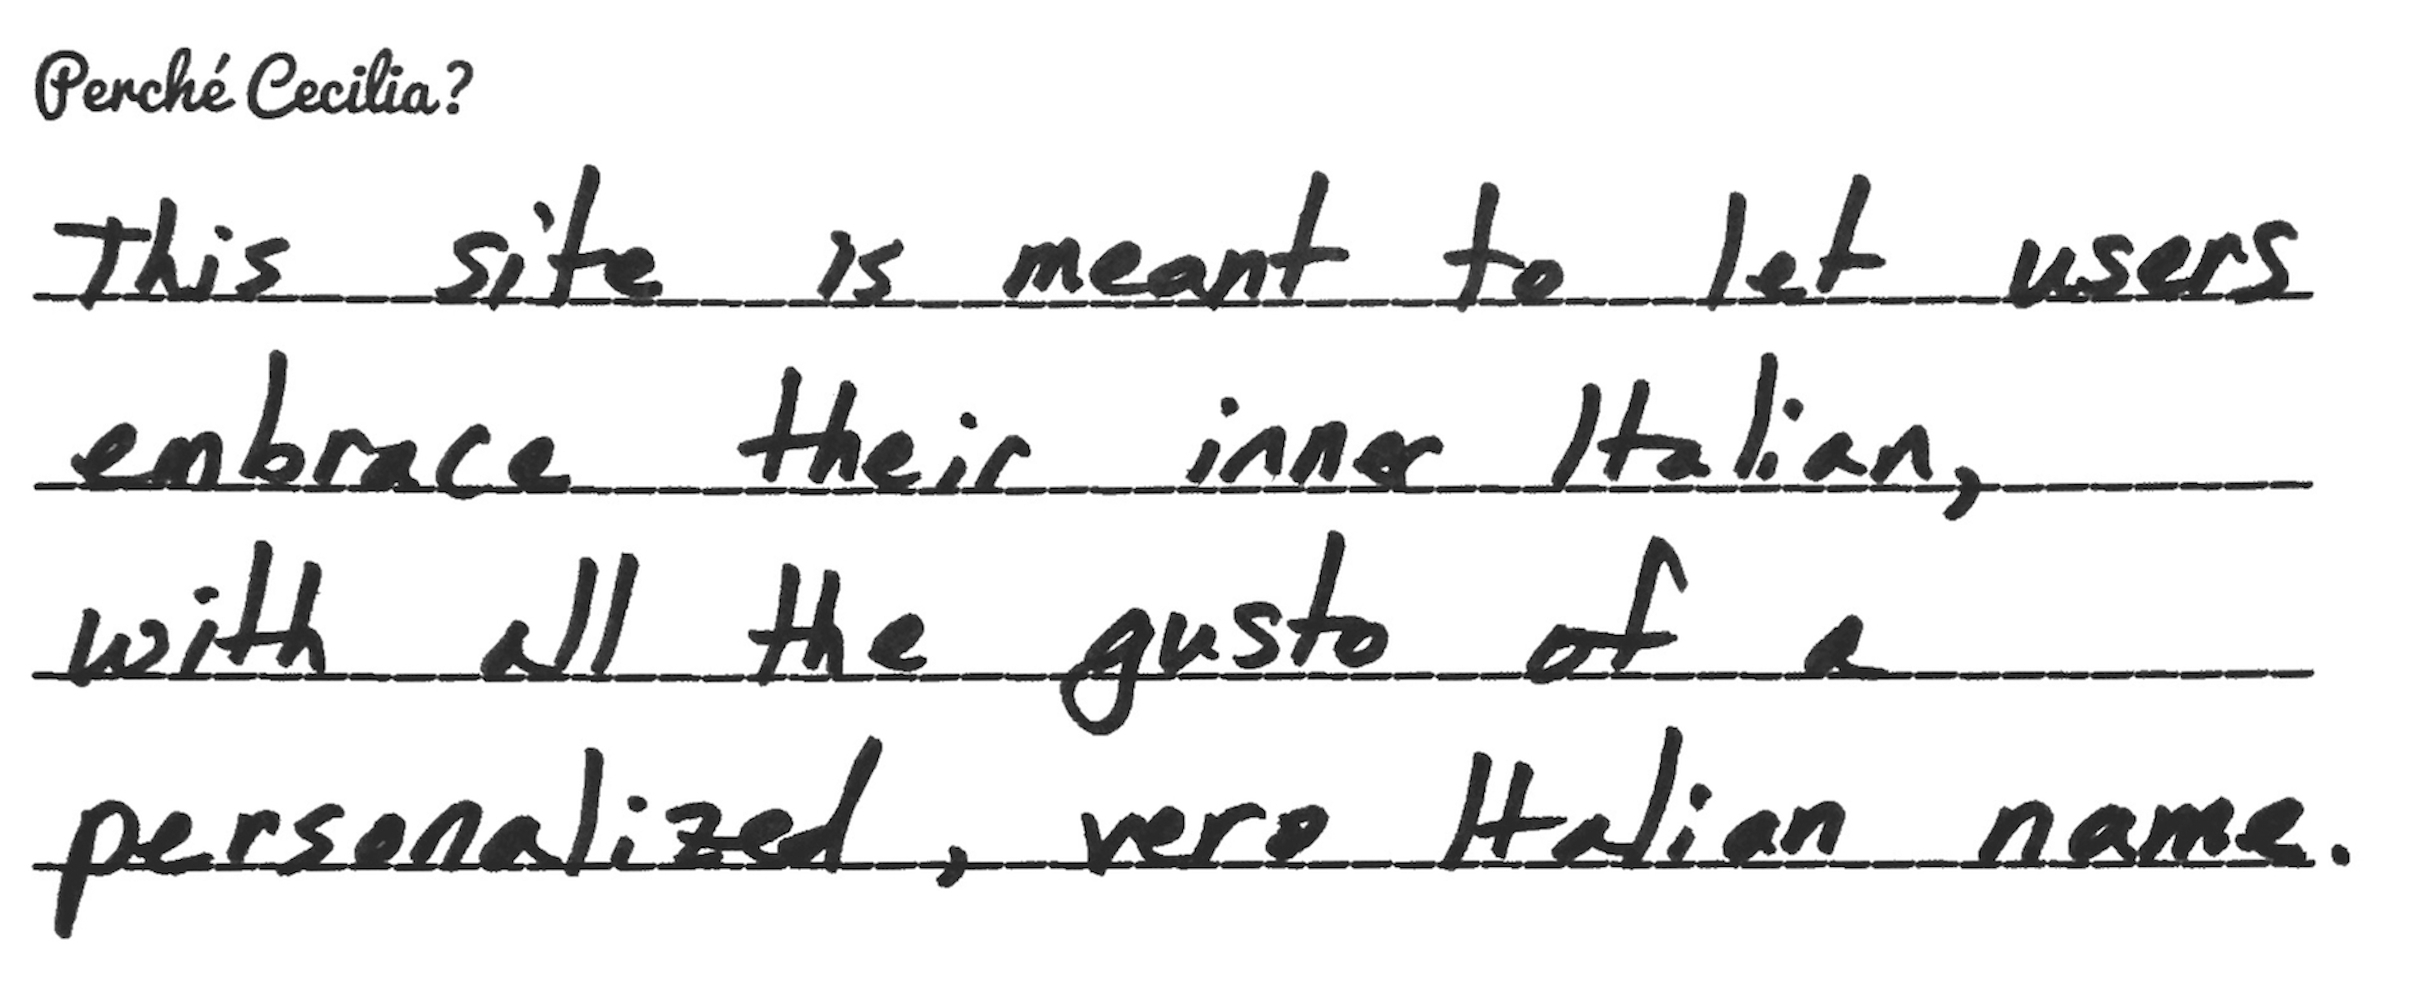 Perché Cecilia?
This site is meant to let users
embrace their inner Italian,
with all the gusto of a
personalized, vero Italian name.